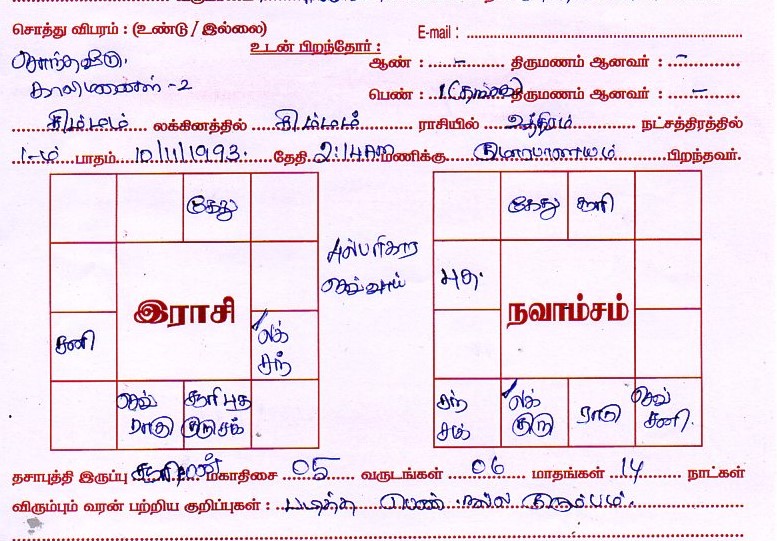 சொத்து விபரம் : (உண்டு / இல்லை) E-mail :
உடன் பிறந்தோர் :
சொந்தவீடு. ஆண் : - திருமணம் ஆனவர் : -
காலிமனைகள் -2 பெண் : 1 (தங்கை) திருமணம் ஆனவர் : -
சிம்மம் லக்கினத்தில் சிம்மம் ராசியில் உத்திரம் நட்சத்திரத்தில்
1-ம் பாதம் 10/11/1993. தேதி 2:14AM மணிக்கு குமாரபாளையம் பிறந்தவர்.
கேது
கேது சூரி
பரிகார
செவ்வாய்
புத.
இராசி
நவாம்சம்
சனி
லக்
சந்
செவ்
ராகு
சூரி புத
குரு சுக்
சந்
சுக்
லக்
குரு
ராகு
செவ்
சனி.
தசாபுத்தி இருப்பு சூரியன் மகாதிசை 05 வருடங்கள் 06 மாதங்கள் 14 நாட்கள்
விரும்பும் வரன் பற்றிய குறிப்புகள் : படித்த பெண் நல்ல குடும்பம்.